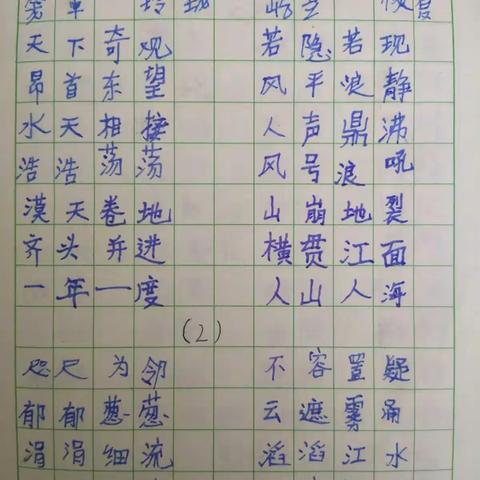 天下奇观 若隐若现
昂首东望 风平浪静
水天相接 人声鼎沸
浩浩荡荡 风号浪吼
漠天卷地 山崩地裂
齐头并进 横贯江面
一年一度 人山人海
(2)
咫尺为邻 不容置疑
郁郁葱葱 云遮雾涌
涓涓细流 滔滔江水